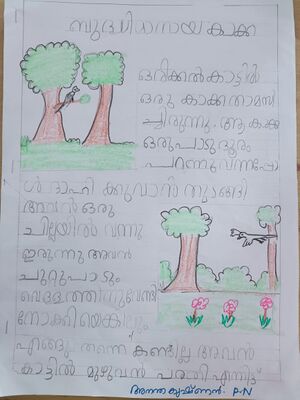 ബുദ്ധിമാനായ കാക്ക
ഒരിക്കൽ കാട്ടിൽ
ഒരു കാക്ക താമസി
ച്ചിരുന്നു. ആ കാക്ക
ഒരുപാടു ദൂരം
പറന്നു വന്നപ്പോ
ൾ ദാഹി ക്കുവാൻ തുടങ്ങി
അവൻ ഒരു
ചില്ലയിൽ വന്നു
ഇരുന്നു അവൻ
ചുറ്റുപാടും
വെള്ളത്തിനുവേണ്ടി
നോക്കിയെങ്കിലും
എങ്ങു തന്നെ കണ്ടില്ല അവൻ
കാട്ടിൽ മുഴുവൻ പരതി എന്നിട്ട്
അനന്തകൃഷ്ണൻ. P-N